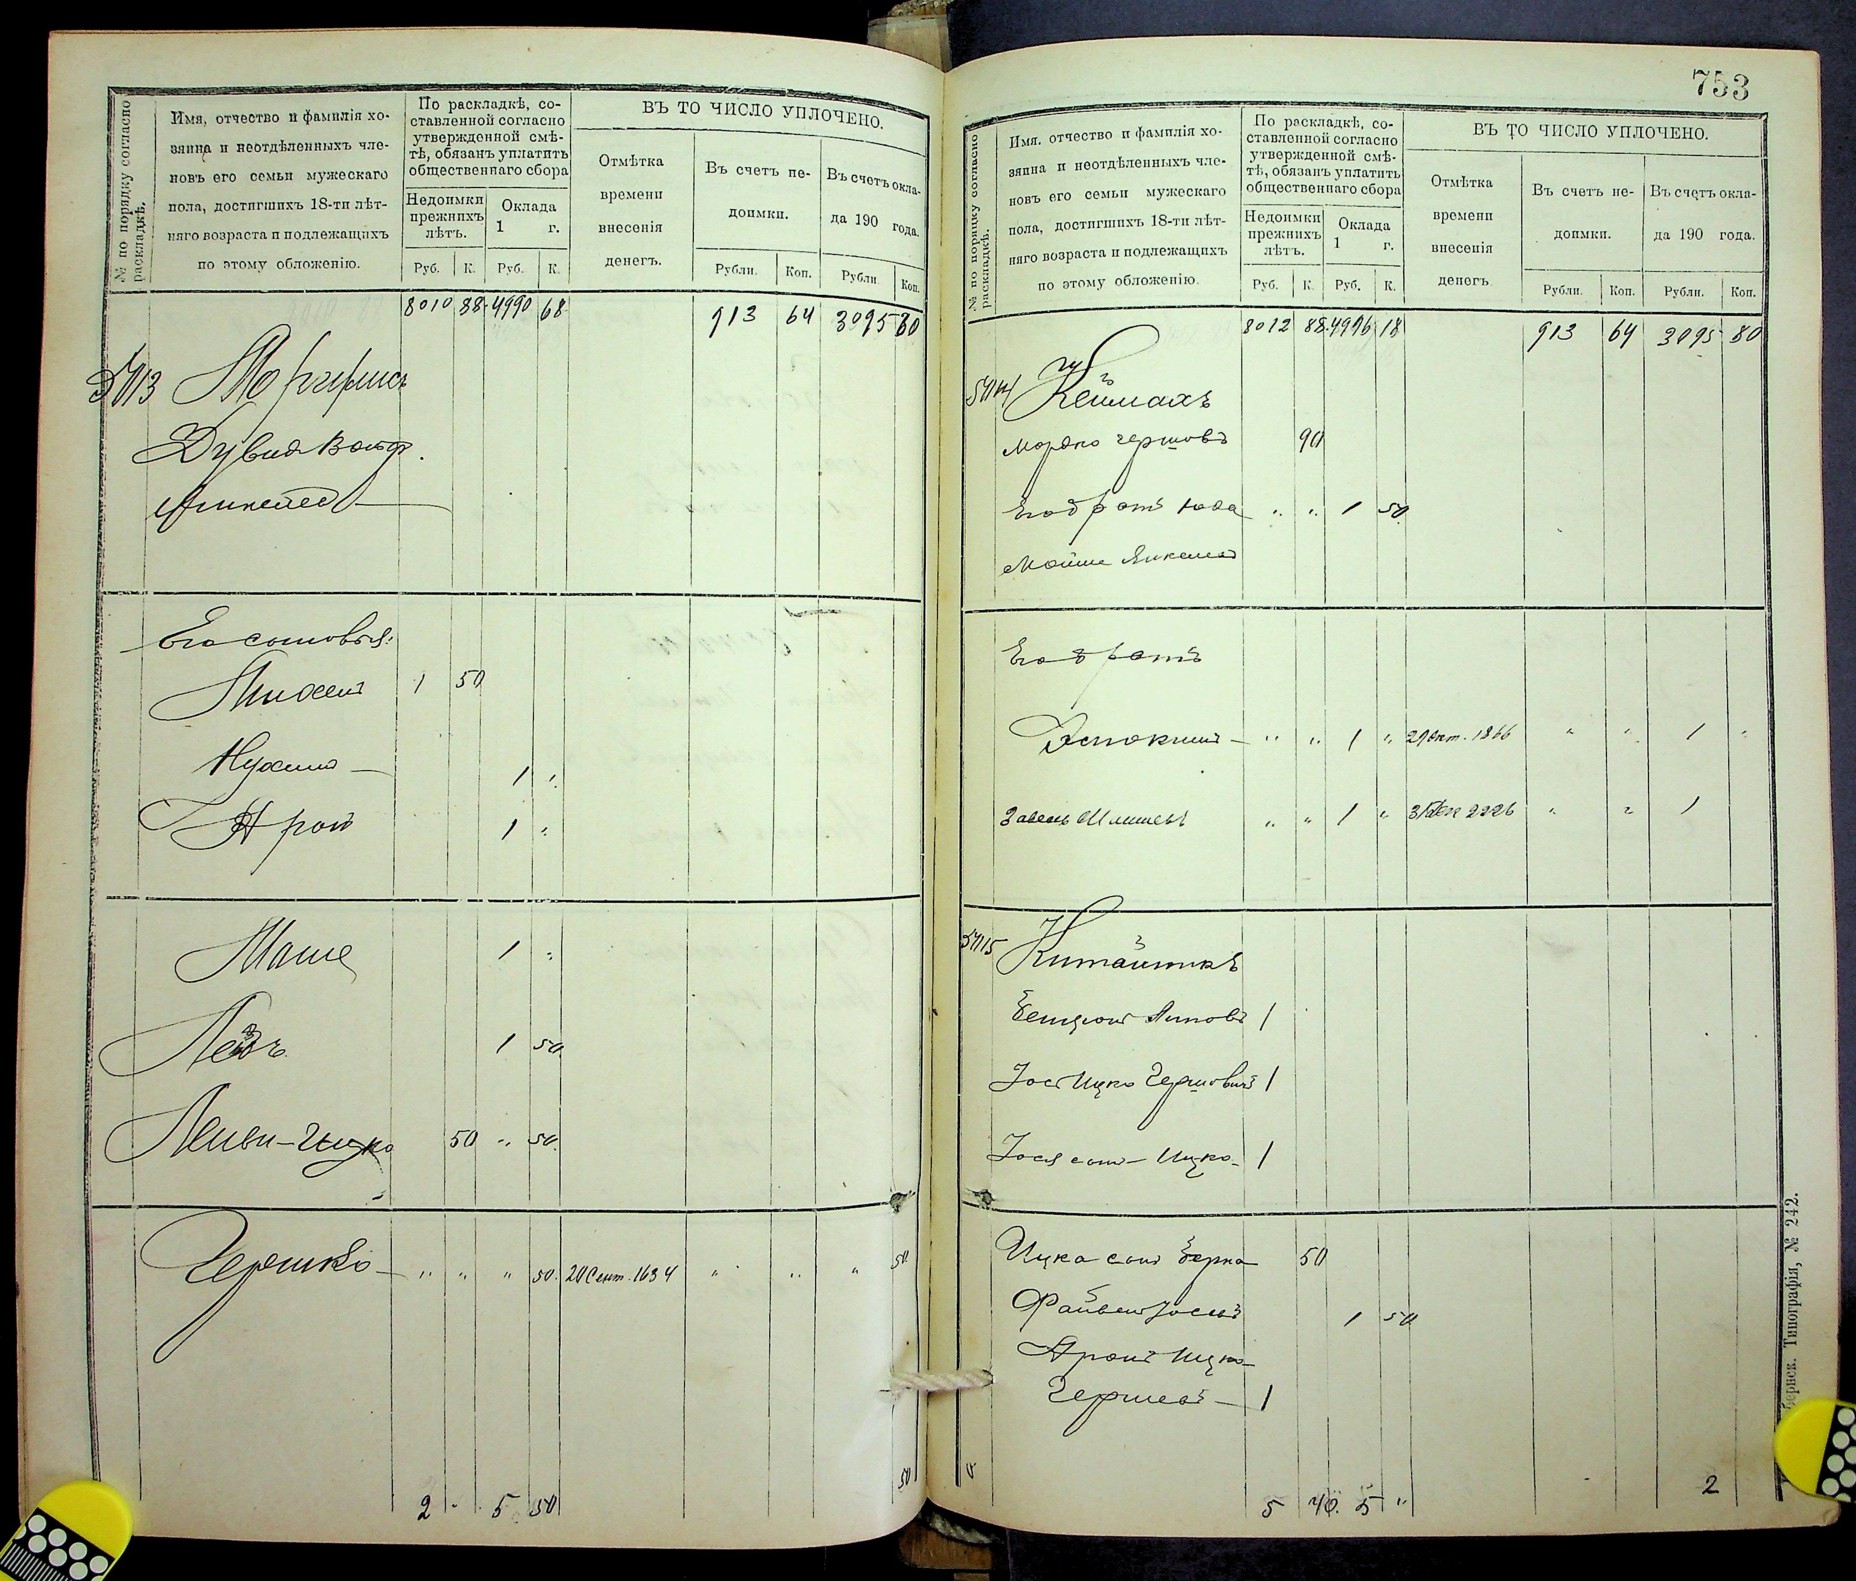 № по порядку согласно раскладкѣ.
Имя, отчество и фамилія хо-
зяина и неотдѣленныхъ чле-
новъ его семьи мужескаго
пола, достигшихъ 18-ти лѣт-
няго возраста и подлежащихъ
по этому обложенію.
По раскладкѣ, со-
ставленной согласно
утвержденной смѣ-
тѣ, обязанъ уплатить
общественнаго сбора
Недоимки прежнихъ лѣтъ.
Оклада 1 г.
Руб. К. Руб. К.
ВЪ ТО ЧИСЛО УПЛОЧЕНО.
Отмѣтка
времени
внесенія
денегъ.
Въ счетъ не-
доимки.
Въ счетъ окла-
да 190 года.
Рубли. Коп. Рубли Коп.
8010 88 4990 68 913 64 3095 80
5413
Его сыновья:
1 50
Нухимъ — 1 "
Аронъ 1 "
1 "
Лейзъ 1 50
Лейви-Ицко 50 " 50
Гершко — " " " 50 20 Сент. 1634 " " " 50
50
2 . 5 50
753
№ по порядку согласно раскладкѣ.
Имя, отчество и фамилія хо-
зяина и неотдѣленныхъ чле-
новъ его семьи мужескаго
пола, достигшихъ 18-ти лѣт-
няго возраста и подлежащихъ
по этому обложенію.
По раскладкѣ, со-
ставленной согласно
утвержденной смѣ-
тѣ, обязанъ уплатить
общественнаго сбора
Недоимки прежнихъ лѣтъ.
Оклада 1 г.
Руб. К. Руб. К.
ВЪ ТО ЧИСЛО УПЛОЧЕНО.
Отмѣтка
времени
внесенія
денегъ
Въ счетъ не-
доимки.
Въ счетъ окла-
да 190 года.
Рубли. Коп. Рубли. Коп.
8012 88 4996 18 913 64 3095 80
5414 Кеймахъ
Мордко Гершовъ 90
Его братъ Юда " " 1 50
Мойше Янкель
Его братъ
— " " 1 " 29 Окт. 1866 " " 1 "
" " 1 " 31 Дек 2226 " " 1
5415 Китайникъ
Бенціонъ 1
Іось Ицко Гершовичъ 1
Іося сынъ — Ицко — 1
Ицка сынъ Берко 50
Файвель Іосевъ 1 50
Аронъ Ицко —
Гершевъ — 1
5 40 5 " 2
Типографія, № 242.